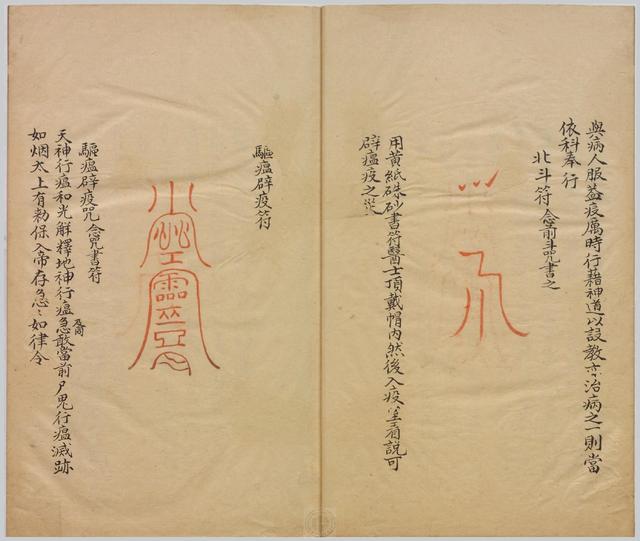 與病人服蓋疫厲時行藉神道以設教亦治病之一則當
依科奉行
北斗符念前斗咒書之
用黃紙硃砂書符醫士頂戴帽內然後入疫家看說可
辟瘟疫之災
驅瘟辟疫符
驅瘟辟疫咒念咒書符
天神行瘟和光解釋地神行瘟急敢當前尸鬼行瘟滅跡
如烟太上有勅保入帝存急急如律令